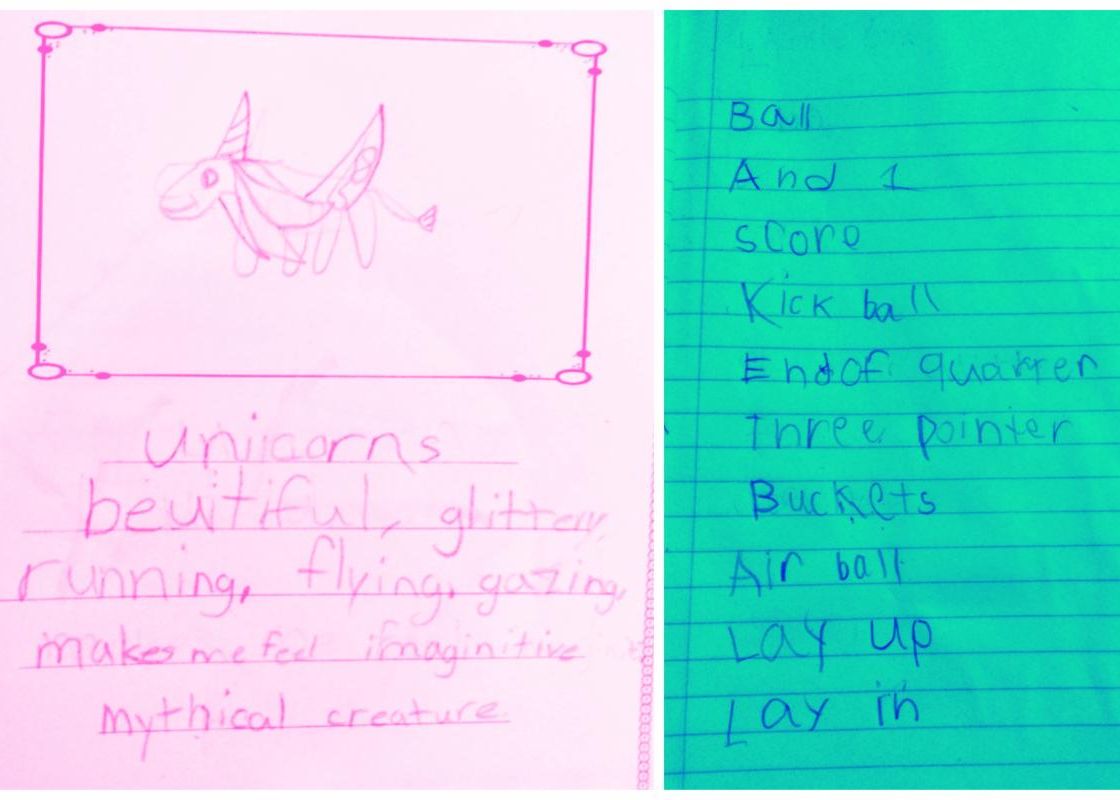 unicorns
bewitiful, glittery
running, flying, gazing,
makes me feel imaginitive
mythical creature
Ball
And 1
score
Kick ball
End of quarter
Three pointer
Buckets
Air ball
Lay up
Lay in